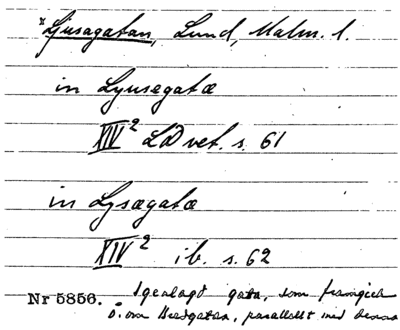 *Ljusagatan, Lund, Malm. l.
in Lyusegatæ
XIV² LDvet. s. 61
in Lysægatæ
XIV² ib. s. 62
Nr 5856. Igenlagd gata, som framgick
ö. om Bredgatan, parallellt med denna